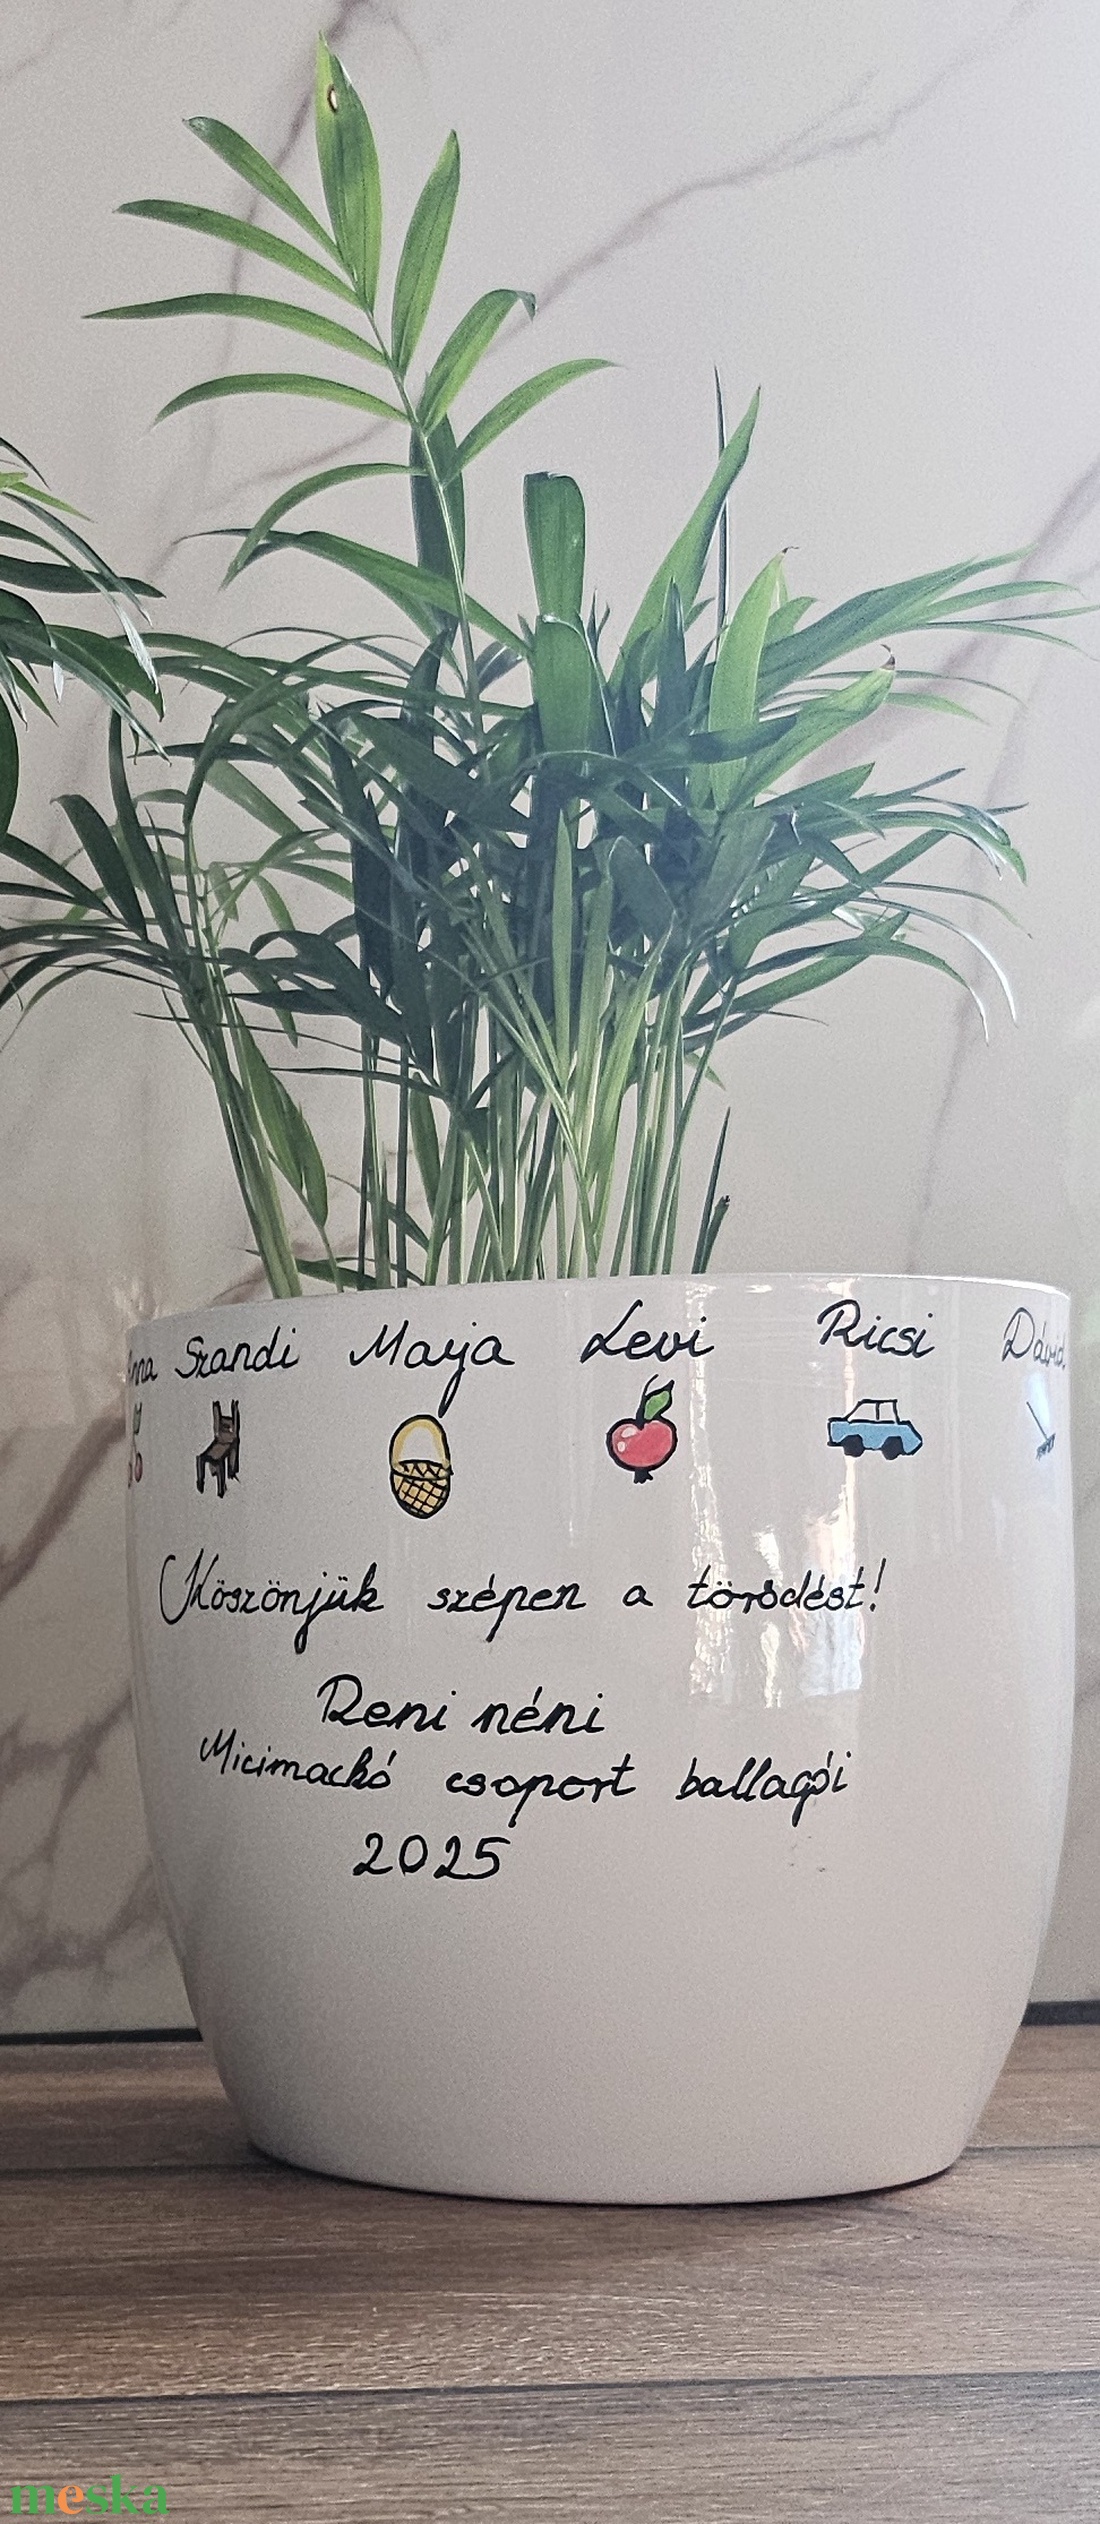 Szandi Maja Levi Ricsi Dávid
Köszönjük szépen a törődést!
Reni néni
Micimackó csoport ballagói
2025
meska